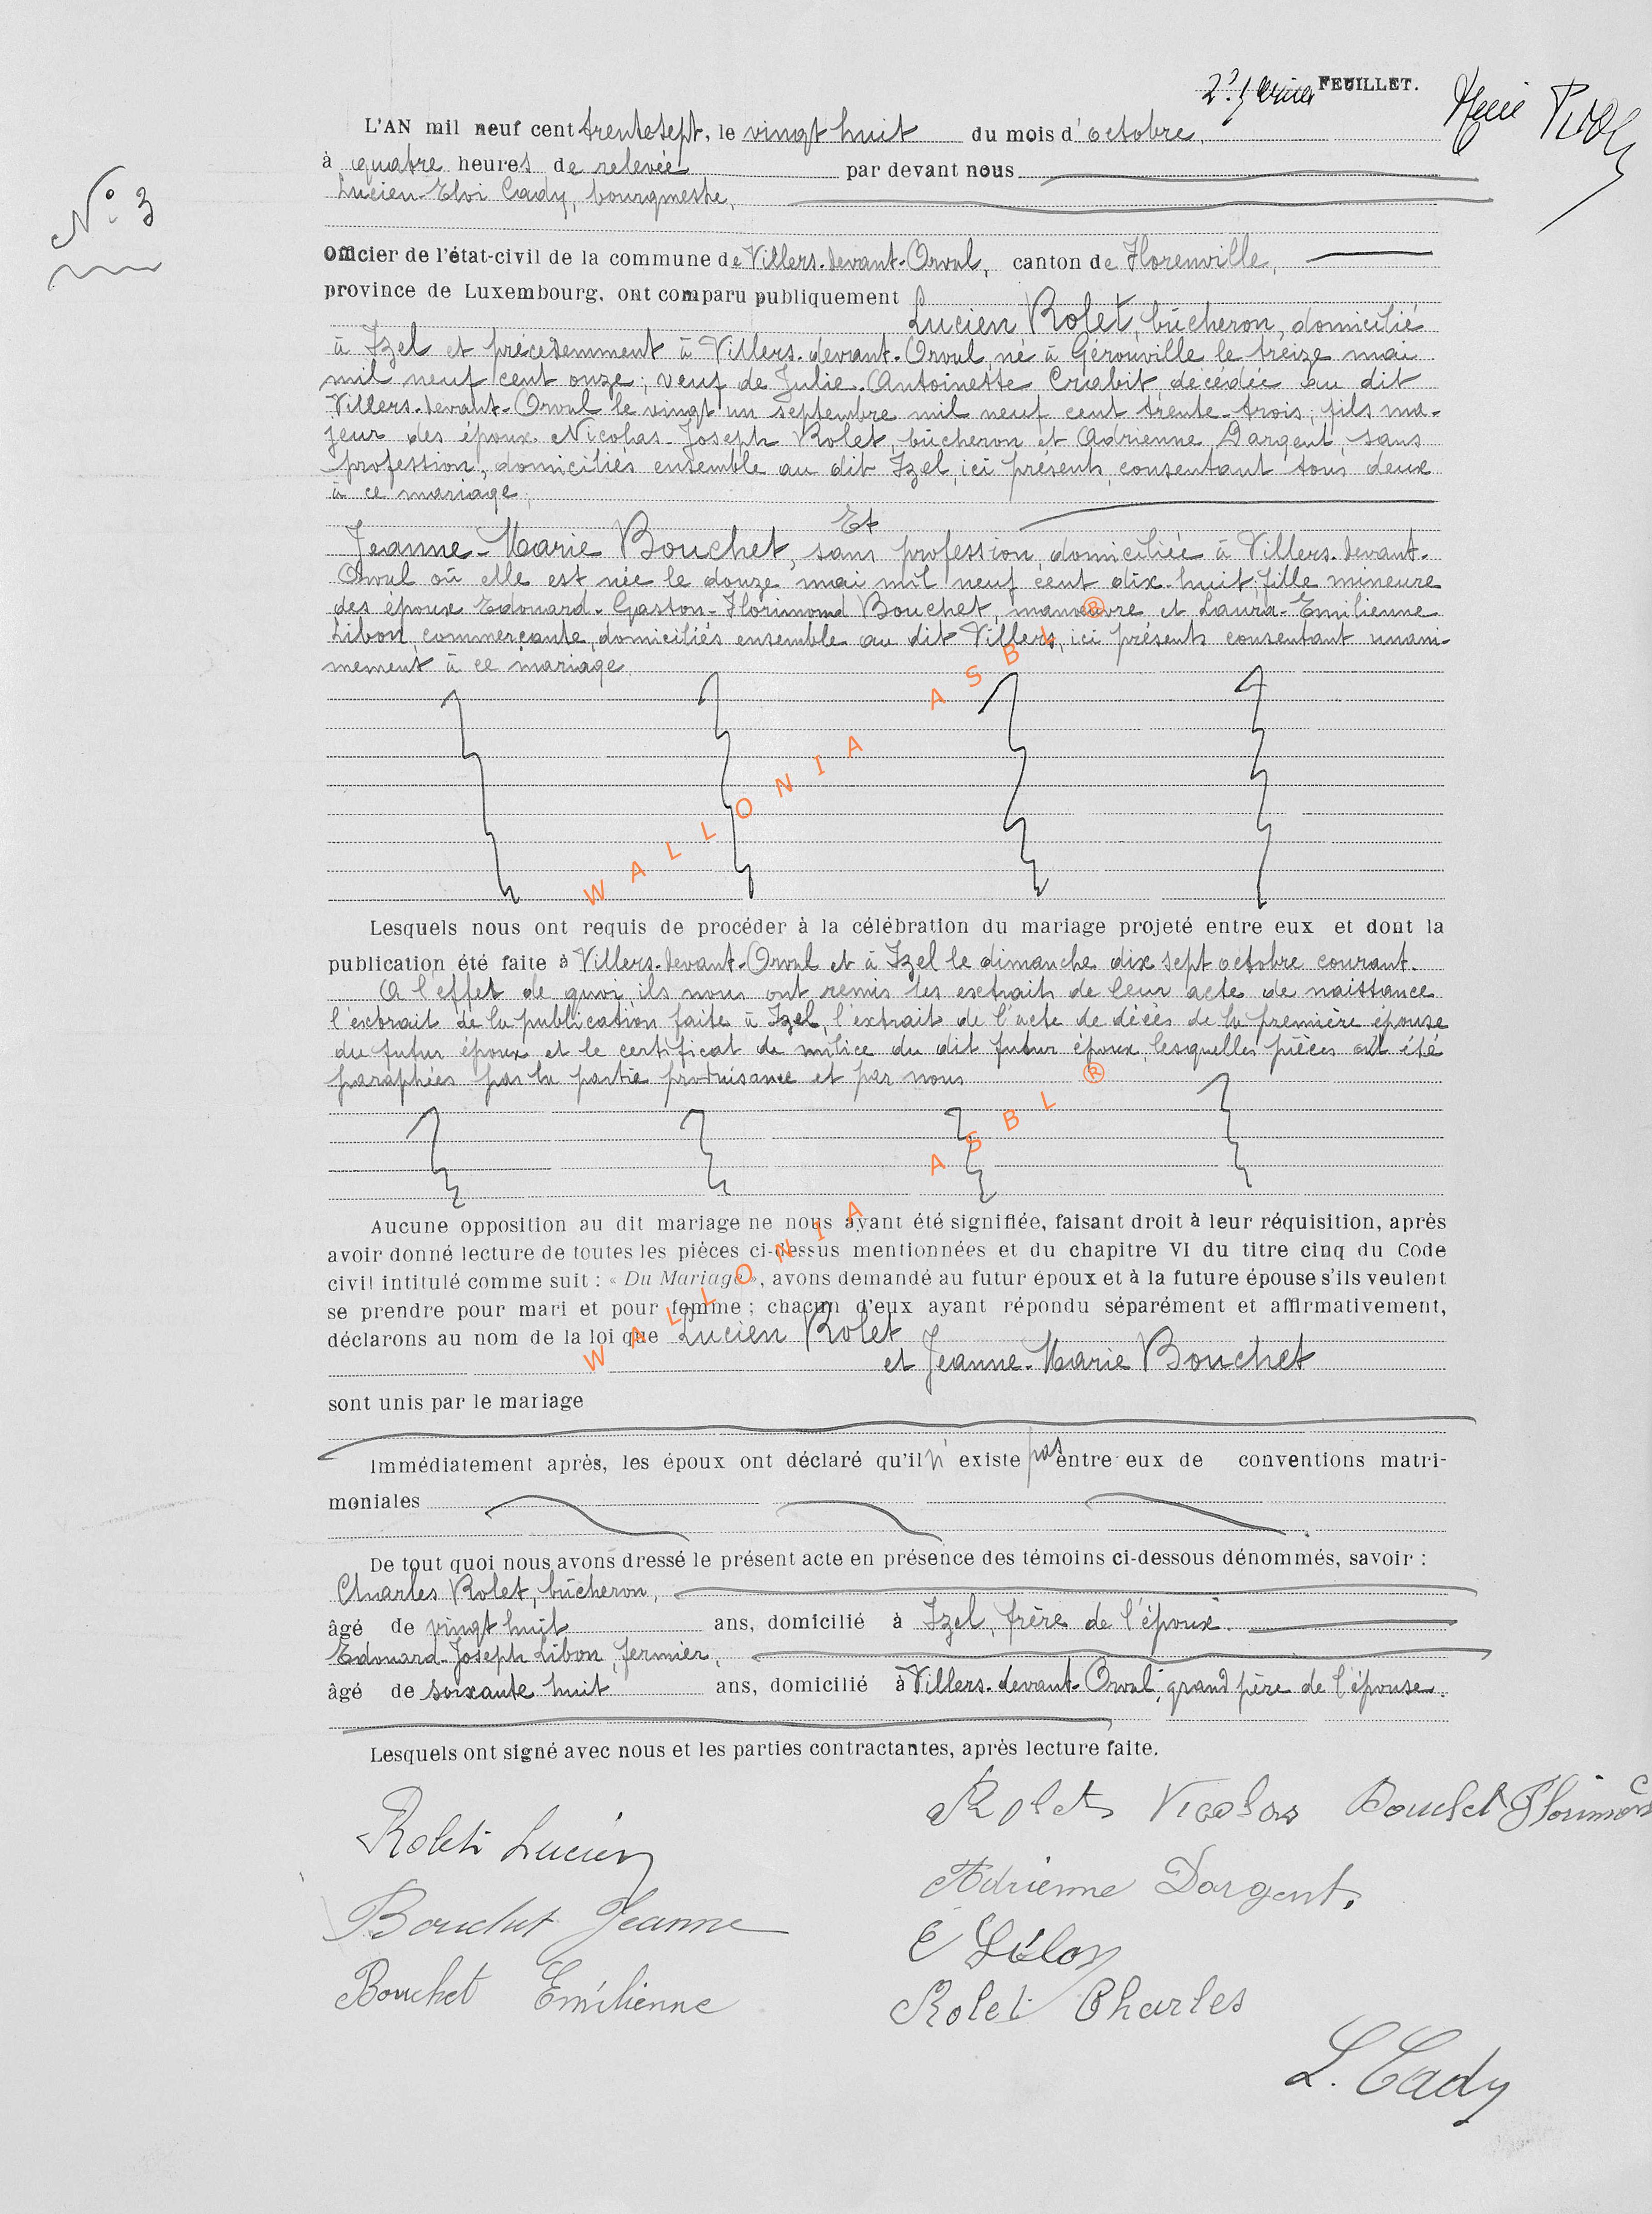 FEUILLET.
N° 3
L'AN mil neuf cent trente sept, le vingt huit du mois d'octobre,
à quatre heures de relevée par devant nous
Lucien-Eloi Cady, bourgmestre,
Officier de l'état-civil de la commune de Villers-devant-Orval, canton de Florenville,
province de Luxembourg, ont comparu publiquement
Lucien Rolet, bûcheron, domicilié
à Izel et précédemment à Villers-devant-Orval, né à Gérouville le treize mai
mil neuf cent onze; veuf de Julie-Antoinette Criabit, décédée au dit
Villers-devant-Orval le vingt un septembre mil neuf cent trente-trois; fils ma-
jeur des époux Nicolas-Joseph Rolet, bûcheron et Adrienne Dargent, sans
profession, domiciliés ensemble au dit Izel, ici présents, consentant tous deux
à ce mariage;
Et
Jeanne-Marie Bouchet, sans profession, domiciliée à Villers-devant-
Orval où elle est née le douze mai mil neuf cent dix-huit; fille mineure
des époux Edouard-Gaston-Florimond Bouchet, manoeuvre et Laura-Emilienne
Libon, commerçante, domiciliés ensemble au dit Villers, ici présents consentant unani-
mement à ce mariage
WALLONIA ASBL ®
Lesquels nous ont requis de procéder à la célébration du mariage projeté entre eux et dont la
publication été faite à Villers-devant-Orval et à Izel le dimanche dix sept octobre courant.
A l'effet de quoi, ils nous ont remis les extraits de leur acte de naissance
l'extrait de la publication faite à Izel, l'extrait de l'acte de décès de la première épouse
du futur époux et le certificat de milice du dit futur époux, lesquelles pièces ont été
paraphées par la partie produisante et par nous
WALLONIA ASBL ®
Aucune opposition au dit mariage ne nous ayant été signifiée, faisant droit à leur réquisition, après
avoir donné lecture de toutes les pièces ci-dessus mentionnées et du chapitre VI du titre cinq du Code
civil intitulé comme suit : « Du Mariage », avons demandé au futur époux et à la future épouse s'ils veulent
se prendre pour mari et pour femme ; chacun d'eux ayant répondu séparément et affirmativement,
déclarons au nom de la loi que Lucien Rolet
et Jeanne-Marie Bouchet
sont unis par le mariage
Immédiatement après, les époux ont déclaré qu'il n'existe pas entre eux de conventions matri-
moniales
De tout quoi nous avons dressé le présent acte en présence des témoins ci-dessous dénommés, savoir :
Charles Rolet, bûcheron,
âgé de vingt huit ans, domicilié à Izel, frère de l'époux.
Edouard-Joseph Libon, fermier,
âgé de soixante huit ans, domicilié à Villers-devant-Orval, grand père de l'épouse.
Lesquels ont signé avec nous et les parties contractantes, après lecture faite.
Rolet Nicolas Bouchet Florimond
Rolet Lucien
Adrienne Dargent.
Bouchet Jeanne
E Libon
Bouchet Emilienne
Rolet Charles
L. Cady